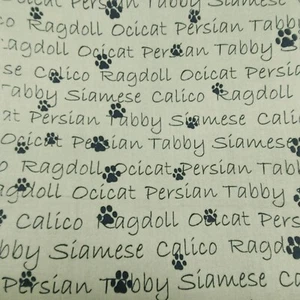 Ocicat Persian Tabby
Calico Ragdoll Ocicat Persian Tabby
Ragdoll Ocicat Persian Tabby
Siamese Calico Ragdoll Ocicat Persian
Tabby Siamese Calico Ragdoll
Cat Persian Tabby Siamese Calico
Ocicat Persian Tabby Siamese
Calico Ragdoll Ocicat Persian Tabby
Ragdoll Ocicat Persian Tabby
Calico Ragdoll Ocicat Persian
Tabby Siamese Calico Ragdoll
Persian Tabby Siamese